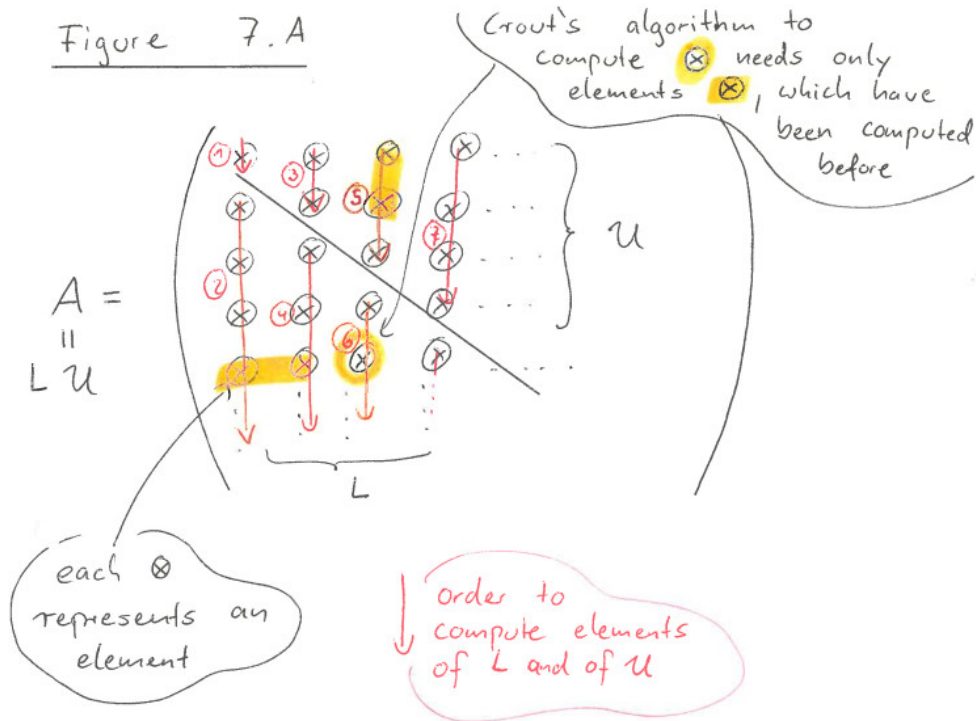 Figure 7.A
Crout's algorithm to
compute ⊗ needs only
elements ⊗, which have
been computed
before
1 3 5 7
2 4 6
U
A =
॥
L U
L
each ⊗
represents an
element
order to
compute elements
of L and of U